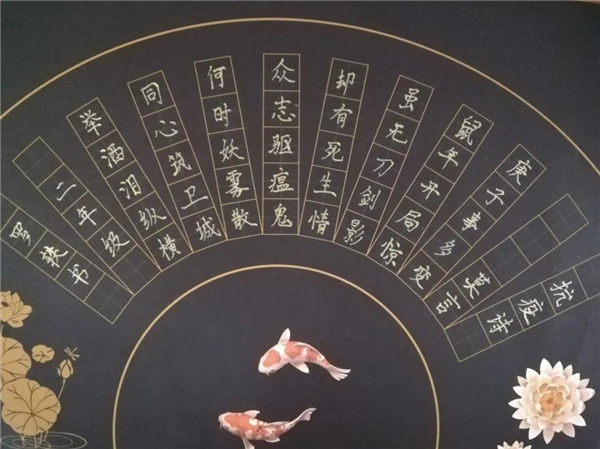 抗疫诗
莫言
庚子事多变
鼠年开局惊
虽无刀剑影
却有死生情
众志驱瘟鬼
何时妖雾散
同心筑卫城
举洒泪纵横
二年级
罗轶书